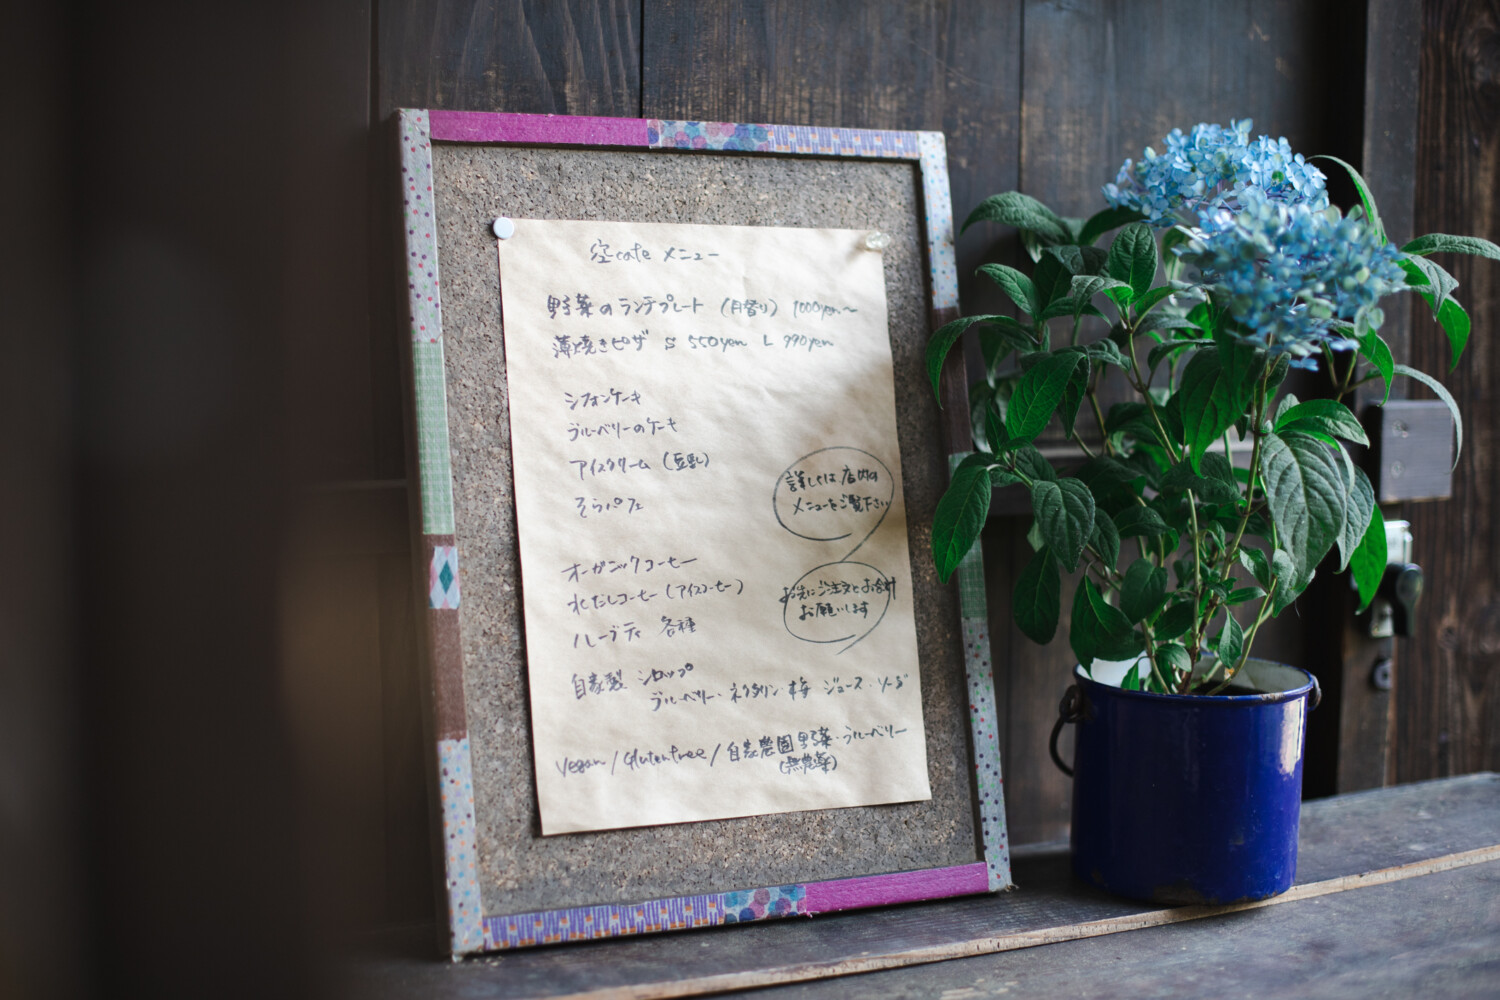 空cafe メニュー
野菜のランチプレート (月替り) 1000yen〜
薄焼きピザ S 550yen L 990yen
シフォンケーキ
ブルーベリーのケーキ
アイスクリーム (豆乳)
そらパフェ
詳しくは店内の
メニューをご覧下さい
オーガニックコーヒー
水だしコーヒー (アイスコーヒー)
ハーブティ 各種
お先にご注文とお会計
お願いします
自家製 シロップ
ブルーベリー・ネクタリン・梅 ジュース・ソーダ
Vegan / Glutenfree / 自家農園野菜・ブルーベリー
(無農薬)